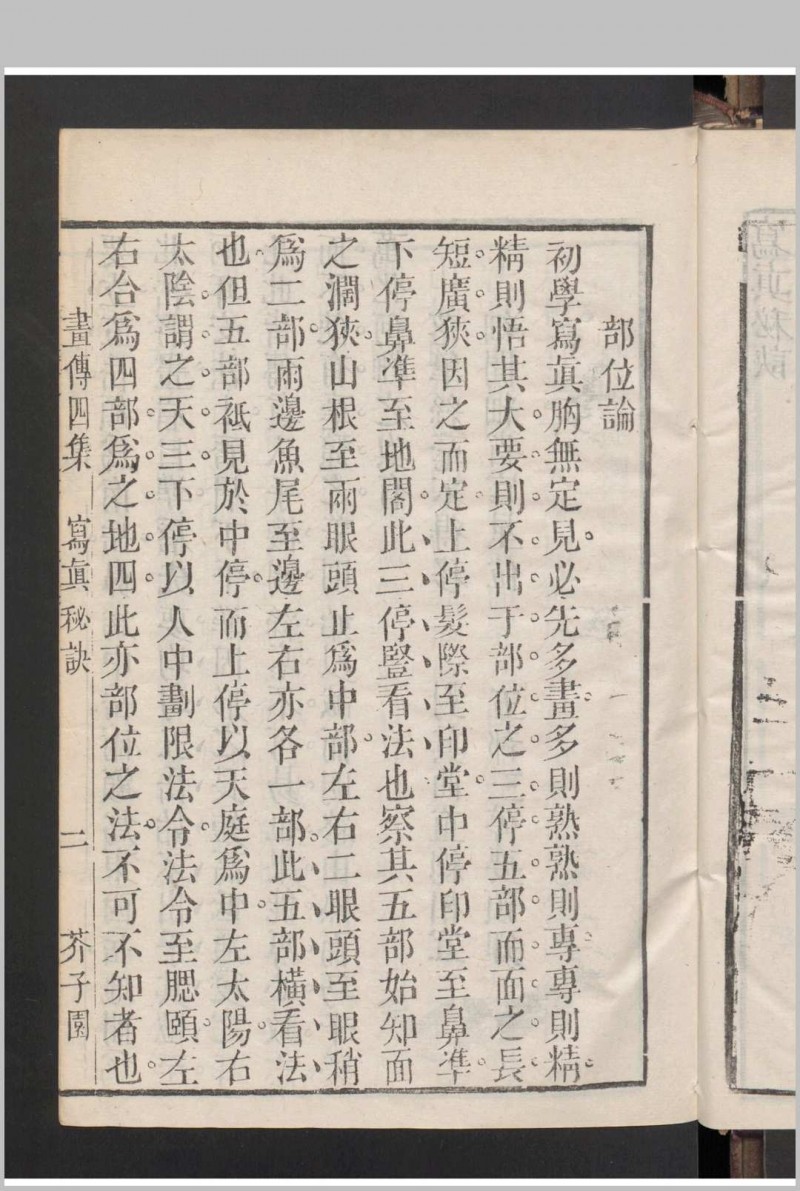 部位論
初學寫眞胸無定見必先多畫多則熟熟則專專則精
精則悟其大要則不出于部位之三停五部而面之長
短廣狹因之而定上停髮際至印堂中停印堂至鼻準
下停鼻準至地閣此三停豎看法也察其五部始知面
之濶狹山根至兩眼頭止爲中部左右二眼頭至眼稍
爲二部兩邊魚尾至邊左右亦各一部此五部橫看法
也但五部祗見於中停而上停以天庭爲中左太陽右
太陰謂之天三下停以人中劃限法令法令至腮頤左
右合爲四部爲之地四此亦部位之法不可不知者也
畫傳四集 寫眞秘訣 二 芥子園